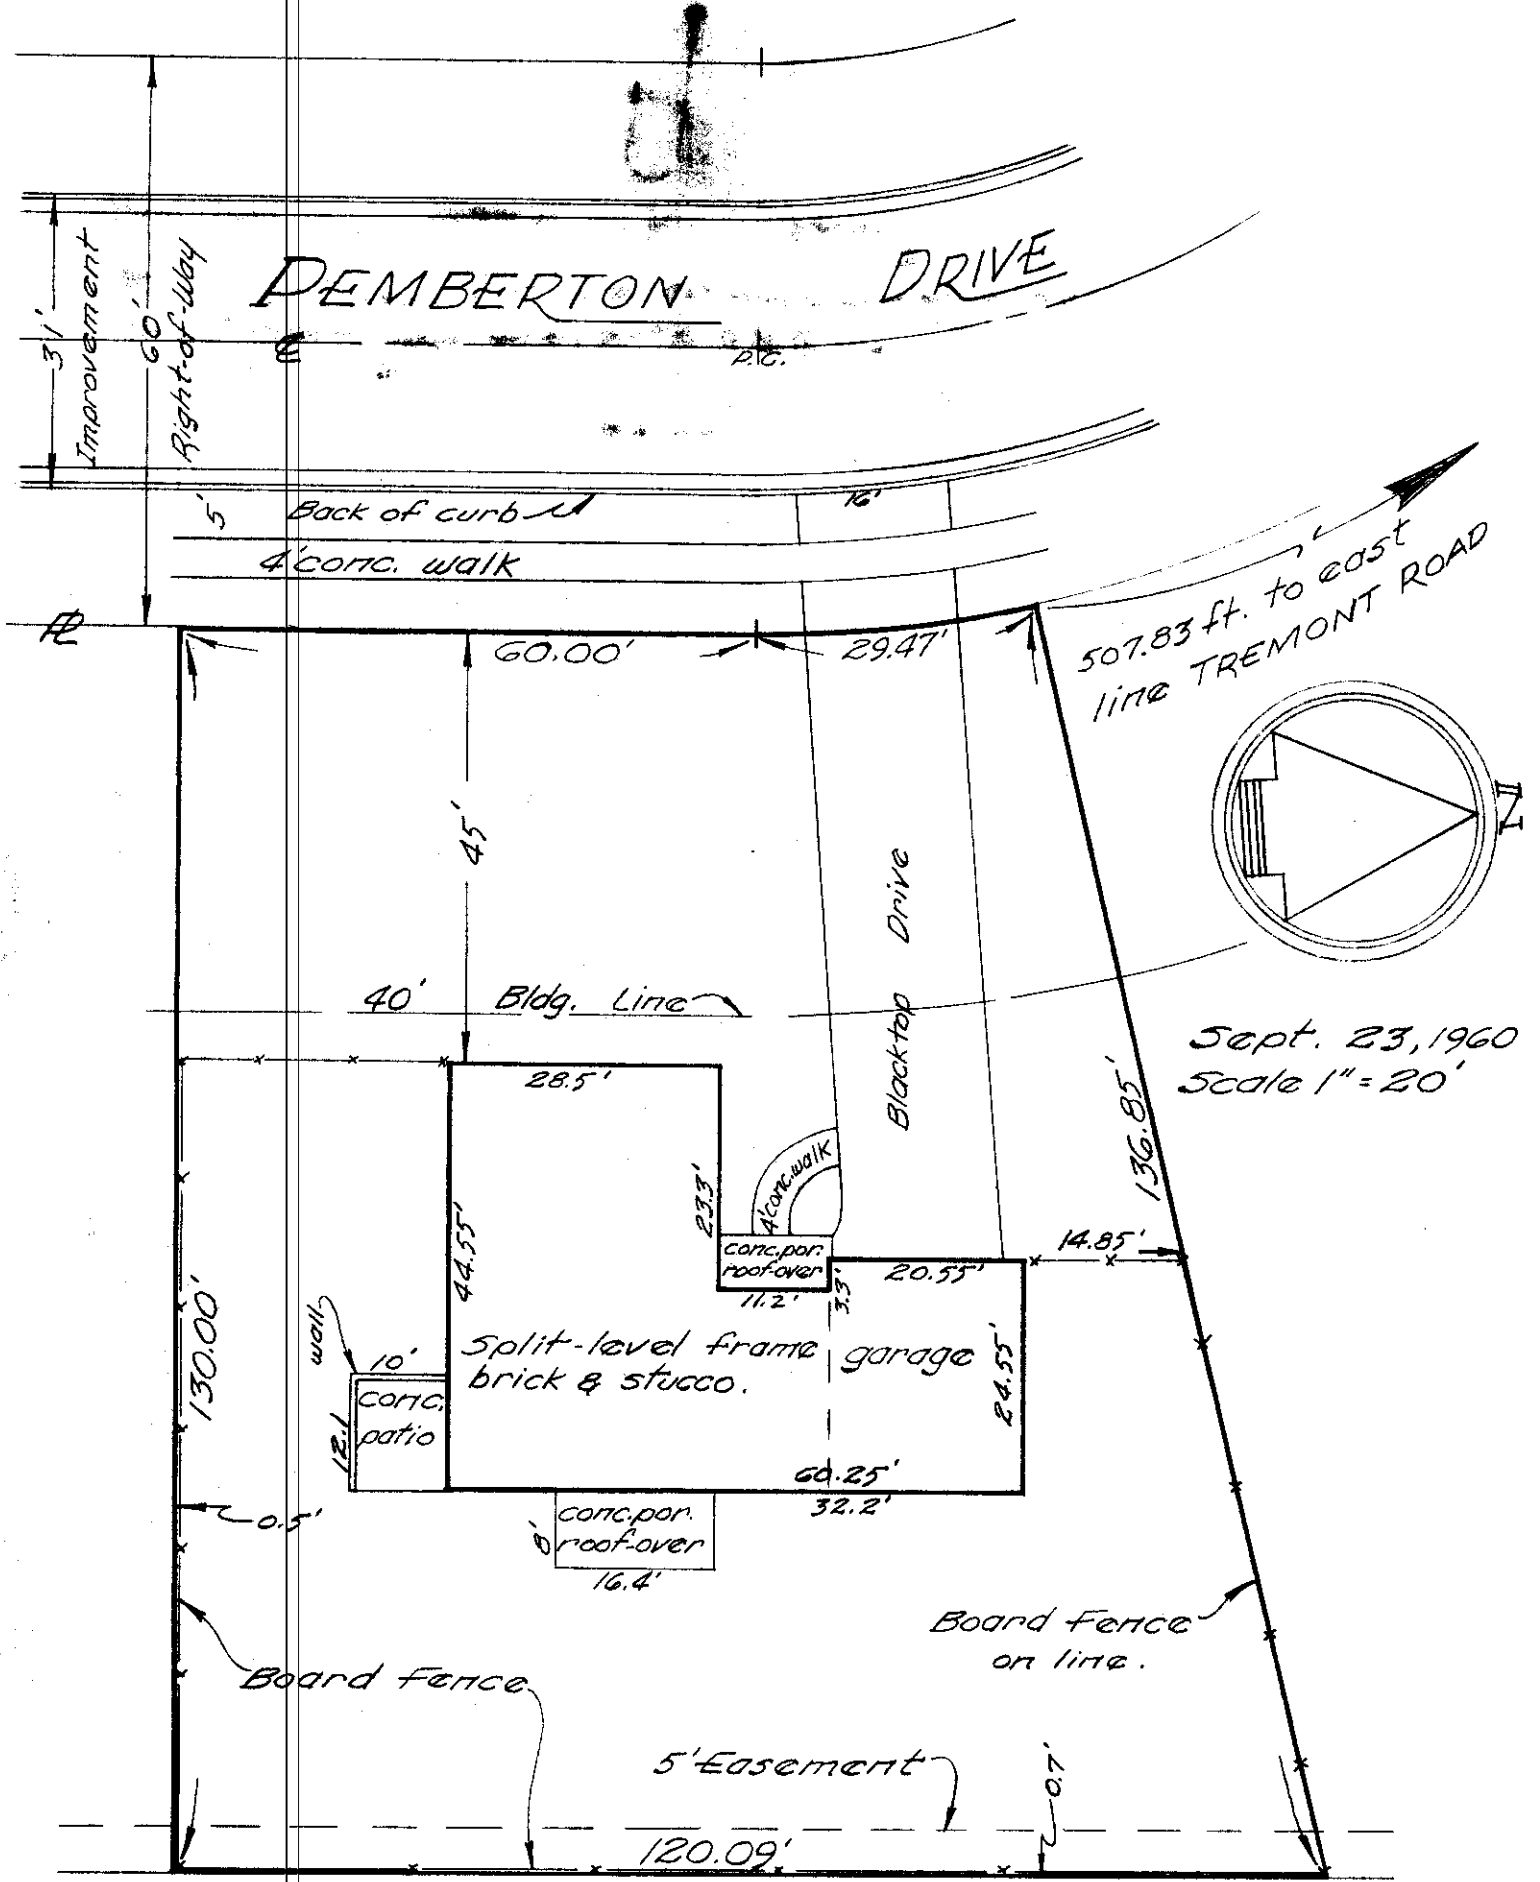 PEMBERTON DRIVE
31'
Improvement
60'
Right-of-Way
P.C.
5'
Back of curb
16'
4' conc. walk
507.83 ft. to east
line TREMONT ROAD
60.00'
29.47'
N
45'
Blacktop Drive
40' Bldg. Line
Sept. 23, 1960
Scale 1" = 20'
28.5'
136.85'
23.3'
4' conc. walk
conc. por.
roof-over
14.85'
44.55'
20.55'
11.2'
3.3'
130.00'
wall
10'
Split-level frame
brick & stucco.
garage
24.55'
conc.
patio
12.1
60.25'
32.2'
0.5'
conc. por.
roof-over
8'
16.4'
Board Fence
on line.
Board Fence
5' Easement
0.7'
120.09'